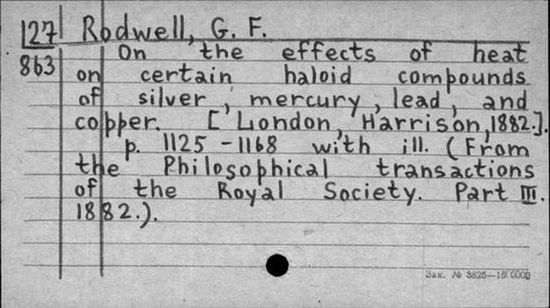 127 Rodwell, G. F.
863 On the effects of heat
on certain haloid compounds
of silver, mercury, lead, and
copper. [London, Harrison, 1882.].
p. 1125-1168 with ill. (From
the Philosophical transactions
of the Royal Society. Part III.
1882.).
Зак. № 3826—18 0000